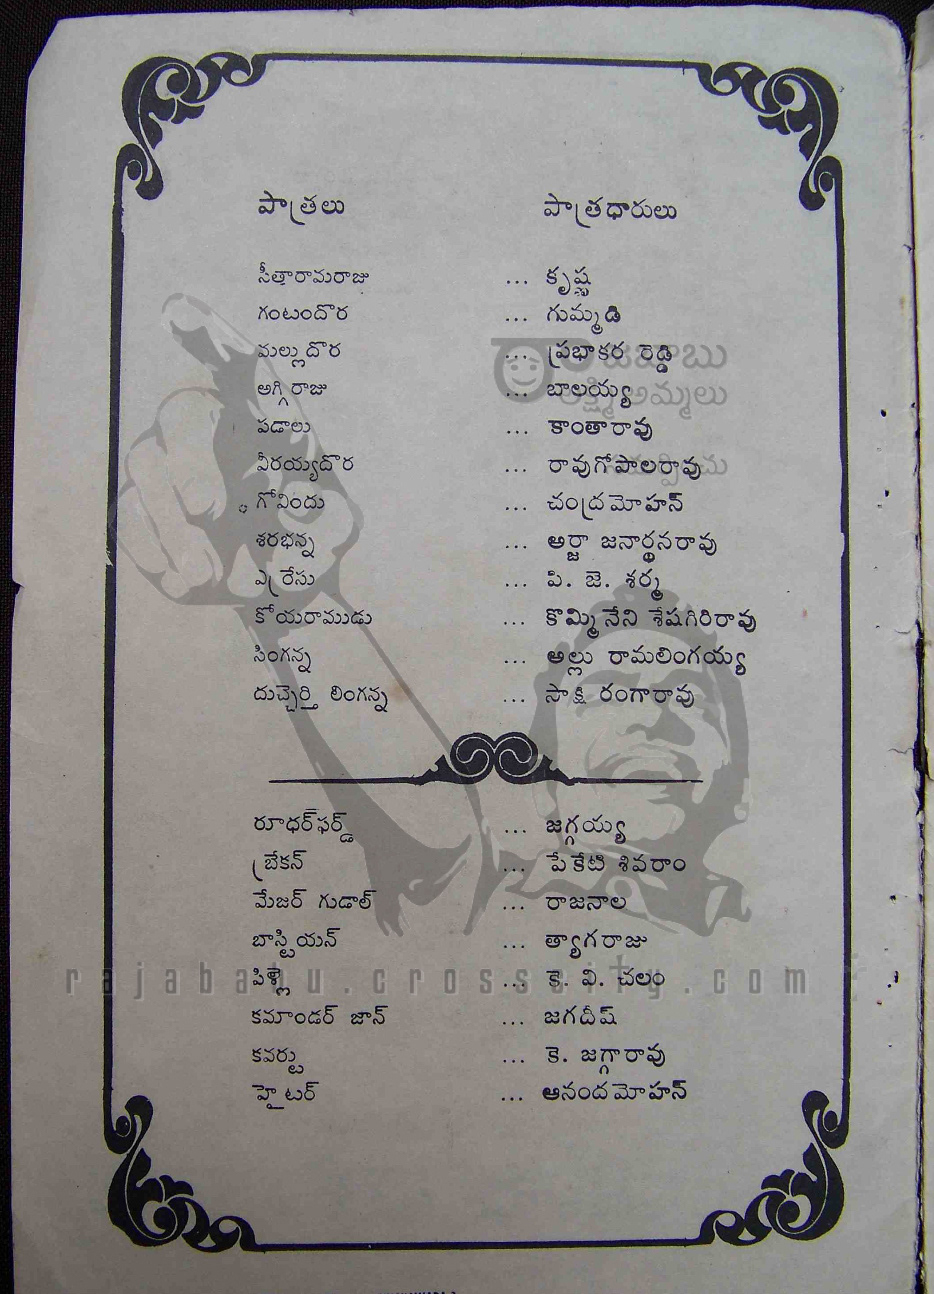 పాత్రలు పాత్రధారులు
సీతారామరాజు ... కృష్ణ
గంటందొర ... గుమ్మడి
మల్లుదొర ... ప్రభాకర రెడ్డి
అగ్గిరాజు ... బాలయ్య
పడాలు ... కాంతారావు
వీరయ్యదొర ... రావుగోపాలరావు
గోవిందు ... చంద్రమోహన్
శరభన్న ... అర్జా జనార్థనరావు
ఎర్రేసు ... పి. జె. శర్మ
కోయరాముడు ... కొమ్మినేని శేషగిరిరావు
సింగన్న ... అల్లు రామలింగయ్య
దుచ్చెర్తి లింగన్న ... సాక్షి రంగారావు
రూధర్‌ఫర్డ్ ... జగ్గయ్య
బ్రేకన్ ... పేకేటి శివరాం
మేజర్ గుడాల్ ... రాజనాల
బాస్టియన్ ... త్యాగరాజు
పిళ్లై ... కె. వి. చలం
rajababu.crosscity.com
కమాండర్ జాన్ ... జగదీష్
కవర్టు ... కె. జగ్గారావు
హైటర్ ... ఆనందమోహన్